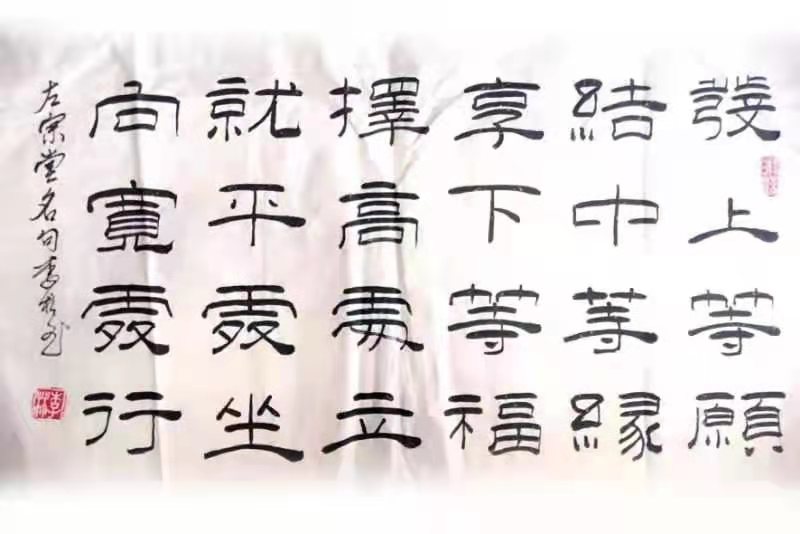 發上等願
結中等緣
享下等福
擇高處立
就平處坐
向寬處行
左宗棠名句李